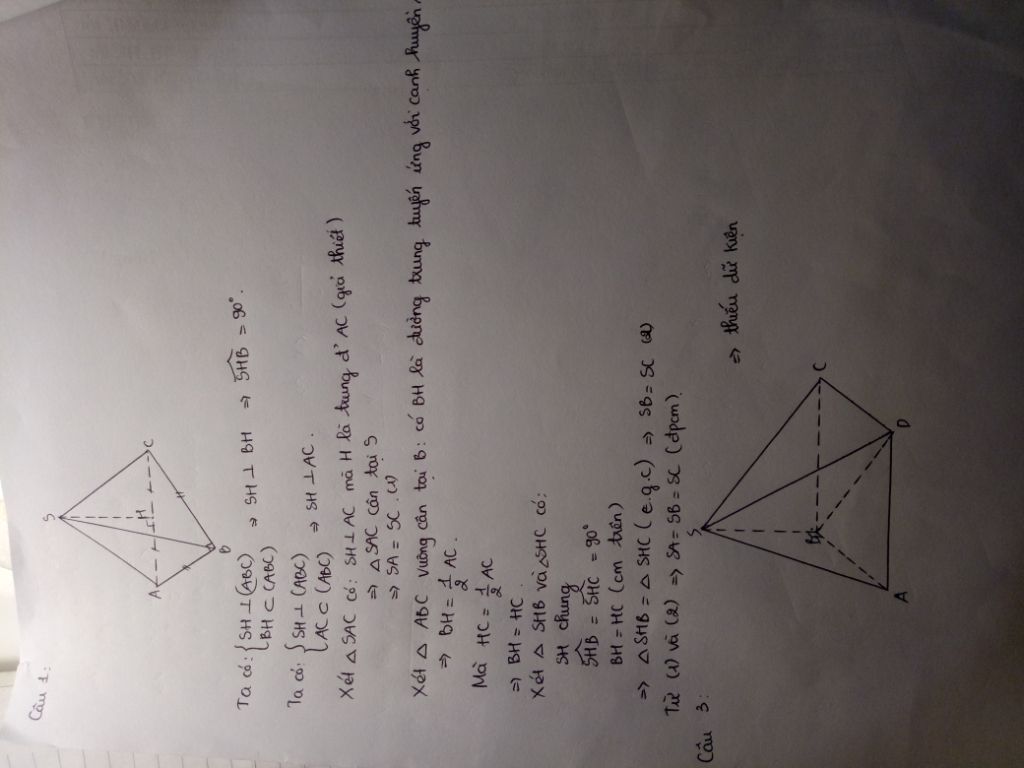 Câu 1:
S
A
H
C
B
Ta có: { SH ⊥ (ABC)
BH ⊂ (ABC) ⇒ SH ⊥ BH ⇒ SHB = 90°.
Ta có: { SH ⊥ (ABC)
AC ⊂ (ABC) ⇒ SH ⊥ AC.
Xét △ SAC có: SH ⊥ AC mà H là trung đ' AC (giả thiết)
⇒ △ SAC cân tại S
⇒ SA = SC. (1)
Xét △ ABC vuông cân tại B: có BH là đường trung tuyến ứng với cạnh huyền
⇒ BH = 1/2 AC.
Mà HC = 1/2 AC
⇒ BH = HC.
Xét △ SHB và △SHC có:
SH chung
SHB = SHC = 90°
BH = HC (cm trên)
⇒ △ SHB = △ SHC (c.g.c) ⇒ SB = SC (2)
Từ (1) và (2) ⇒ SA = SB = SC (dpcm).
Câu 3:
S
C
A
D
⇒ thiếu dữ kiện